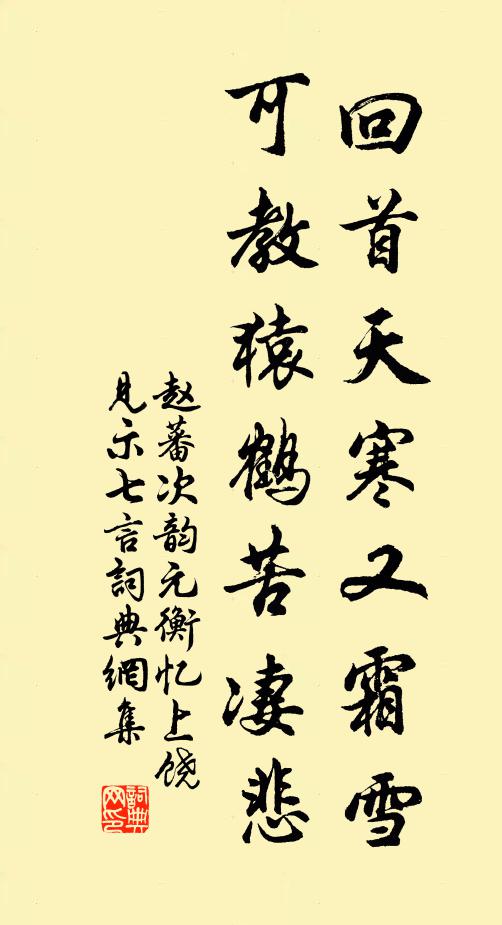 回首天寒又霜雪
可教猿鹤苦凄悲
赵蕃次韵元衡忆上饶
见示七言詞典網集
詞典网印